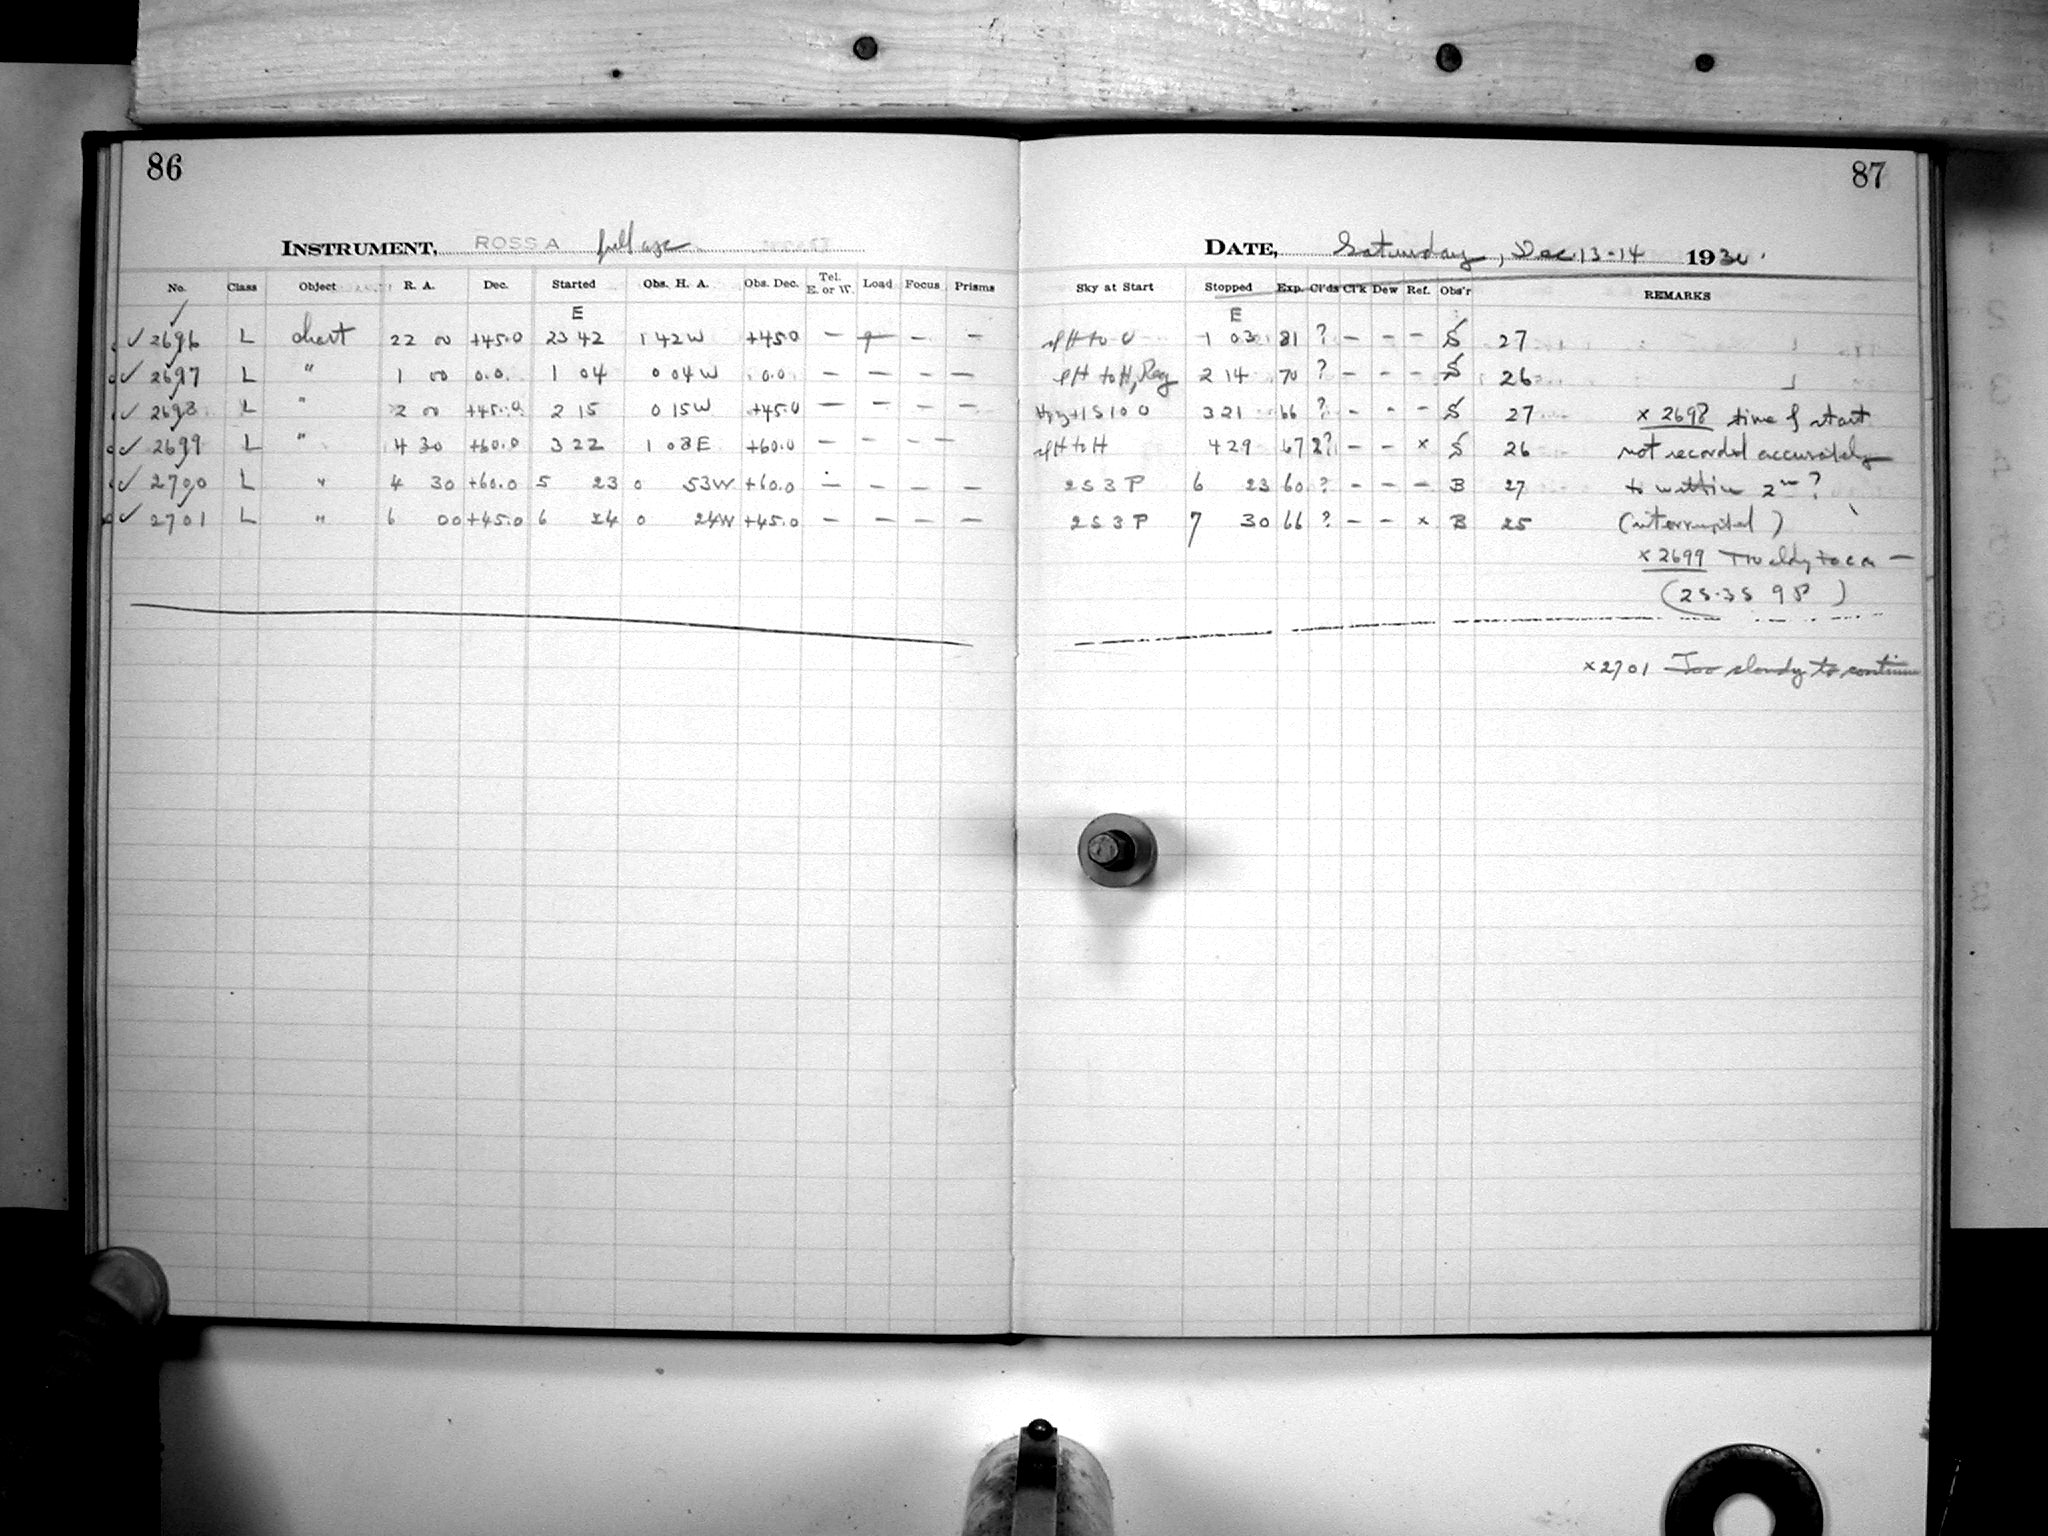 86
INSTRUMENT, ROSS A full age
No. Class Object R. A. Dec. Started Obs. H. A. Obs. Dec. Tel. E. or W. Load Focus Prisms
E
✓ 2696 L chart 22 00 +45.0 23 42 1 42 W +45.0 — — — —
✓ 2697 L " 1 00 0.0 1 04 0 04 W 0.0 — — — —
✓ 2698 L " 2 00 +45.0 2 15 0 15 W +45.0 — — — —
✓ 2699 L " 4 30 +60.0 3 22 1 08 E +60.0 — — — —
✓ 2700 L " 4 30 +60.0 5 23 0 53 W +60.0 — — — —
✓ 2701 L " 6 00 +45.0 6 24 0 24 W +45.0 — — — —
87
DATE, Saturday, Dec. 13-14 1930.
Sky at Start Stopped Exp. Cl'ds Cl'k Dew Ref. Obs'r REMARKS
E
1 03 81 ? — — — S 27
2 14 70 ? — — — S 26
3 21 66 ? — — — S 27 x 2698 time of start
4 29 67 ? — — x S 26 not recorded accurately
2 S 3 P 6 23 60 ? — — — B 27 to within 2m?
2 S 3 P 7 30 66 ? — — x B 25 (interrupted)
x 2699
(2S-3S 9P)
x 2701 Too cloudy to continue